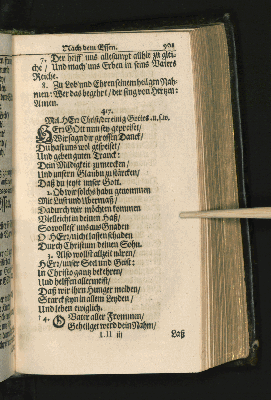 Nach dem Essen. 901
7. Der helff uns allesampt allhie zu glei-
che / Und mach uns Erben in seins Vaters
Reiche.
8. Zu Lob und Ehren seinem heilgen Nah-
men: Wer das begehrt / der sing von Hertzen:
Amen.
417.
Mel. HErr Christ / der einig Gottes u. s. w.
HErr GOtt nun sey gepreiset /
Wir sagn dir grossen Danck /
Du hast uns wol gespeiset /
Und geben guten Tranck:
Dein Mildigkeit zu mercken /
und unsern Glaubn zu stärcken /
Daß du seyst unser Gott.
2. Ob wir solchs habn genommen
Mit Lust und Ubermaß /
Dadurch wir möchten kommen
Vielleicht in deinen Haß /
So wollest uns aus Gnaden
O HErr / nicht lassen schaden
Durch Christum deinen Sohn.
3. Also wollst allzeit nären /
HErr / unser Seel und Geist:
In Christo gantz bekehren /
Und helffen allermeist /
Daß wir den Hunger meiden /
Starck seyn in allem Leyden /
Und leben ewiglich.
4. O Vater aller Frommen /
Geheilget werd dein Nahm /
Laß